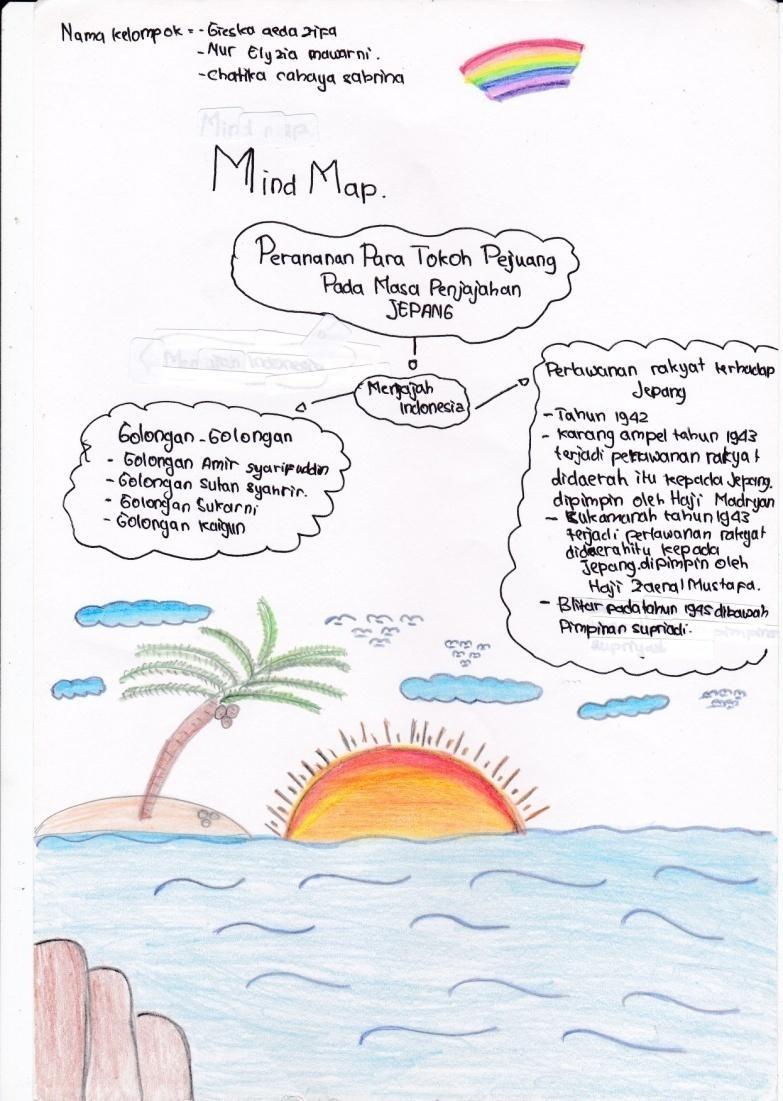 Nama kelompok = - Greska aeda zifa
- Nur Elyzia mawarni.
- Chatika cahaya sabrina
Mind map
Mind Map.
Perananan Para Tokoh Pejuang
Pada Masa Penjajahan
JEPANG
Menjajah
Indonesia
Golongan-Golongan
- Golongan Amir syarifuddin
- Golongan Sutan syahrir.
- Golongan Sukarni
- Golongan Kaigun
Perlawanan rakyat terhadap
Jepang
- Tahun 1942
- Karang ampel tahun 1943
terjadi perlawanan rakyat
didaerah itu kepada Jepang.
dipimpin oleh Haji Madryan
- Sukamanah tahun 1943
terjadi perlawanan rakyat
didaerahitu kepada
Jepang.dipimpin oleh
Haji Zaenal Mustapa.
- Blitar pada tahun 1945 dibawah
Pimpinan supriadi.